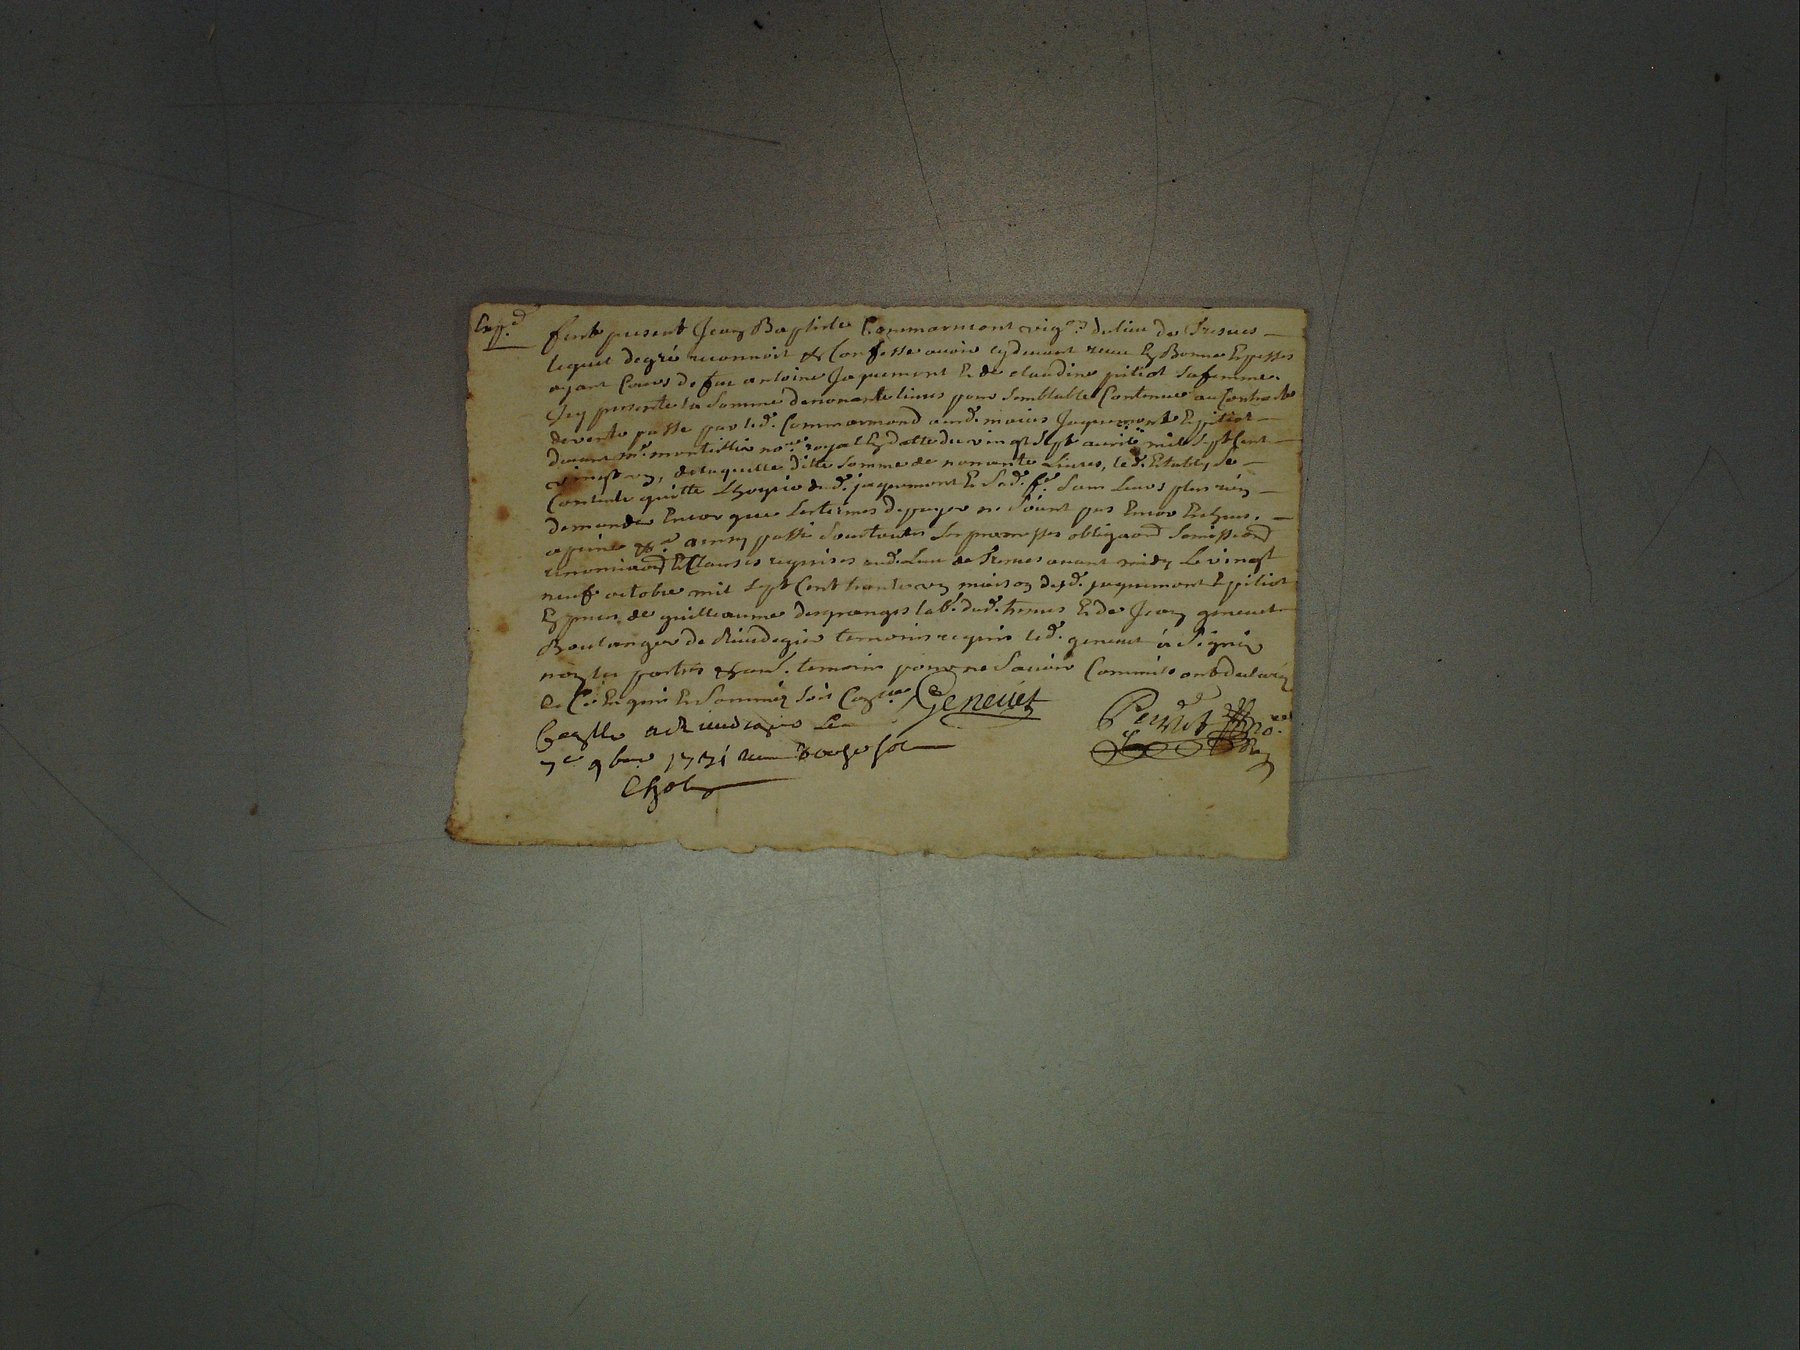 Exp.d
fut present Jean Baptiste Commarmont vig.on du lieu de Tresves
lequel de gré reconnoit & Confesse avoir cy devant receu En Bonne Especes
ayant Cours de feu antoine Jaquemont Et de claudine pitiot sa femme
Icy presente la somme de nonante livres pour semblable Contenue au Contracte
de vente passe par led. Commarmond aud. mariés Jaquemont Et pitiot
devant m.e montellier no.re royal En datte du vingt sept avril mil sept Cent
vingt, de laquelle ditte somme de nonante Livres, led. Etably se
Contente quitte L'hoyrie dud. jaquemont Et sad. f.e sans Leurs plus rien
demander Encor que les termes de payer ne soient pas Encor Echeus.
a peine &.a ainsy passé sous toutes les promesses obliga.ons soumissions
renoncia.ons & Clauses requises aud. Lieu de Treves avant midy Le vingt
neuf octobre mil sept Cent trente un maison desd. jaquemont Et pitiot
En pnce de guillaume desgranges lab.r dud. treves Et de Jean genevet
Boulanger de Rivedegier temoins requis led. genevet a signé
non les parties & aut. temoin pour ne savoir Comme ont declaré
de Ce Enquis Et sommés Genevet
Con.llé a Rivedegier Le
7.e 9bre 1731 receu douze sols